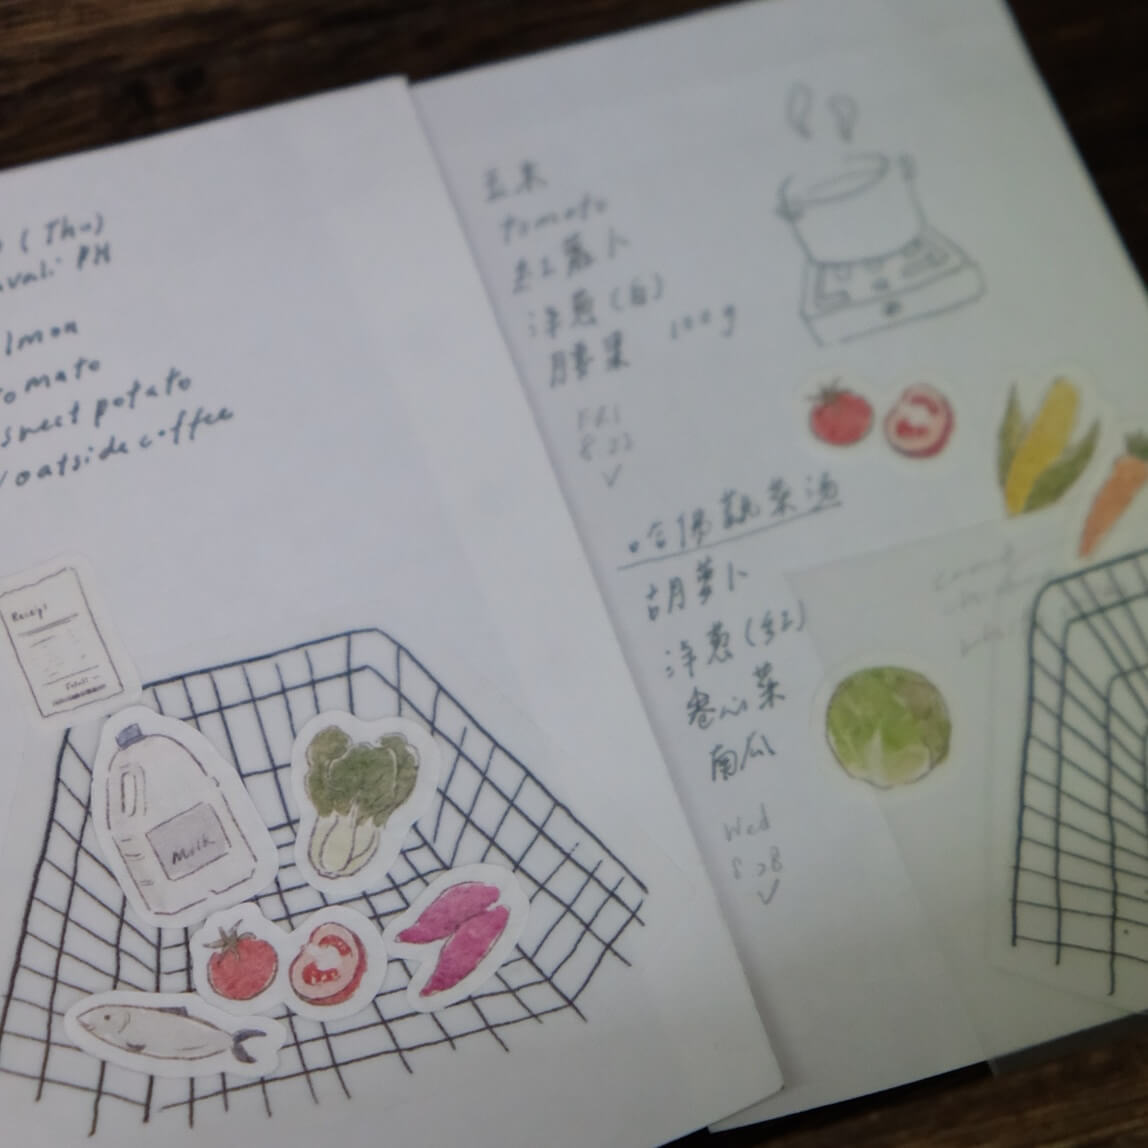 (Thu)
PH
lmon
tomato
sweet potato
/oatside coffee
Receipt
Total
Milk
玉米
tomato
红萝卜
洋葱(白)
腰果 100g
FRI
8.22
✓
哈佛蔬菜汤
胡萝卜
洋葱(红)
卷心菜
南瓜
Wed
8.28
✓